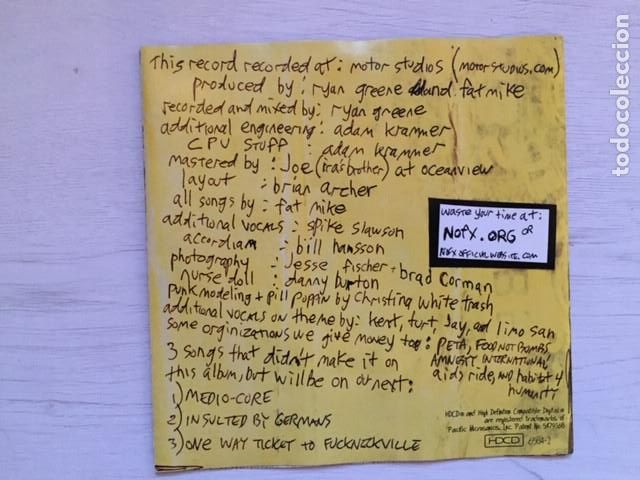 This record recorded at: motor studios (motorstudios.com)
produced by: ryan greene and fat mike
recorded and mixed by: ryan greene
additional engineering: adam krammer
CPU STUFF : adam krammer
mastered by: Joe (ira's brother) at oceanview
layout : brian archer
all songs by: fat mike
additional vocals: spike slawson
accordiam : bill hansson
photography : Jesse fischer + brad Corman
nurse doll : danny burton
punk modeling + pill poppin by Christina white trash
additional vocals on theme by: kent, turt, Jay, and limo san
some orginizations we give money too: PETA, FOOD NOT BOMBS
AMNESTY INTERNATIONAL
aids ride, and habitat 4
humanity
3 songs that didn't make it on
this album, but will be on our next:
1) MEDIO-CORE
2) INSULTED BY GERMANS
3) ONE WAY TICKET to FUCKNECKVILLE
waste your time at:
NOFX.ORG OR
NOFXOFFICIALWEBSITE.COM
HDCD and High Definition Compatible Digital
are registered trademarks of
Pacific Microsonics, Inc.
HDCD
todocoleccion